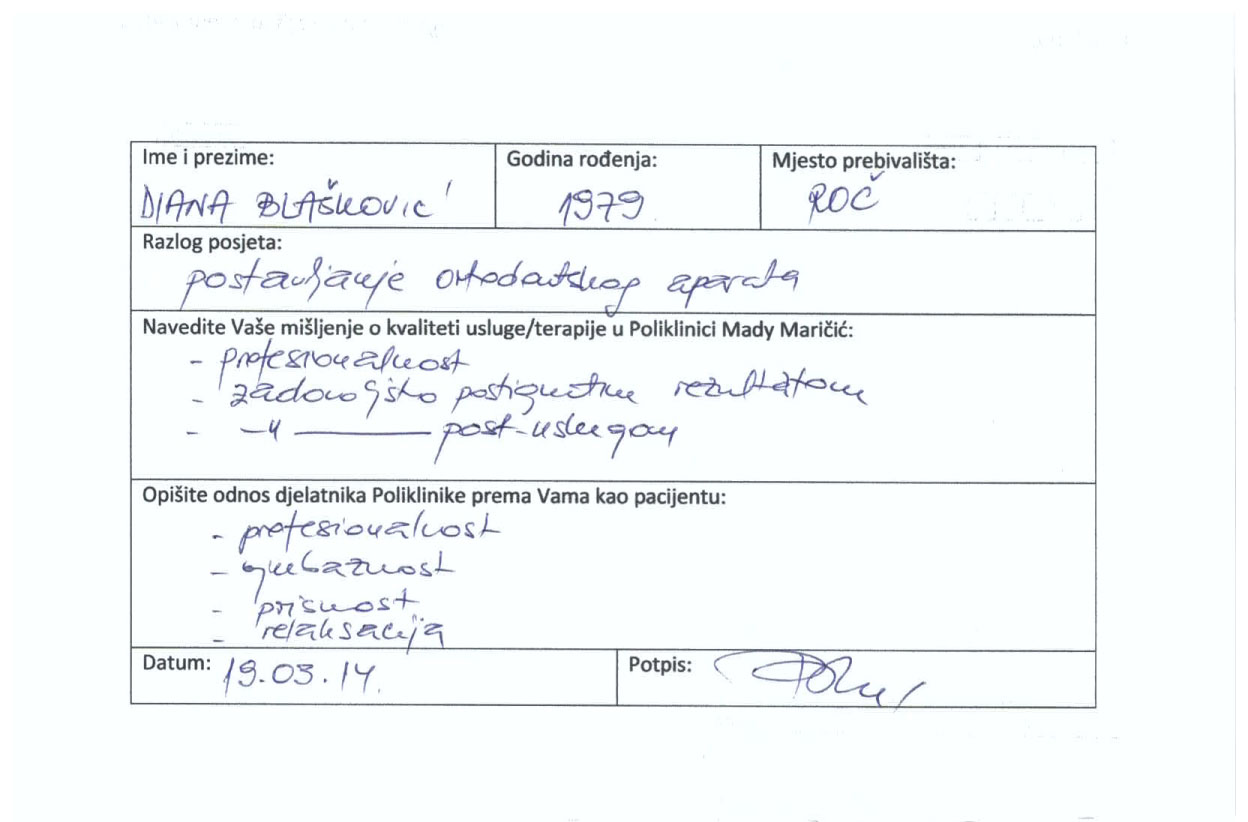 Ime i prezime: Godina rođenja: Mjesto prebivališta:
DIANA BLAŠKOVIĆ 1979 ROČ
Razlog posjeta:
postavljanje ortodatskog aparata
Navedite Vaše mišljenje o kvaliteti usluge/terapije u Poliklinici Mady Maričić:
- profesionalnost
- zadovoljstvo postignutim rezultatom
- -"- post-uslugom
Opišite odnos djelatnika Poliklinike prema Vama kao pacijentu:
- profesionalnost
- ljubaznost
- prisnost
- relaksacija
Datum: 19.03.14. Potpis: